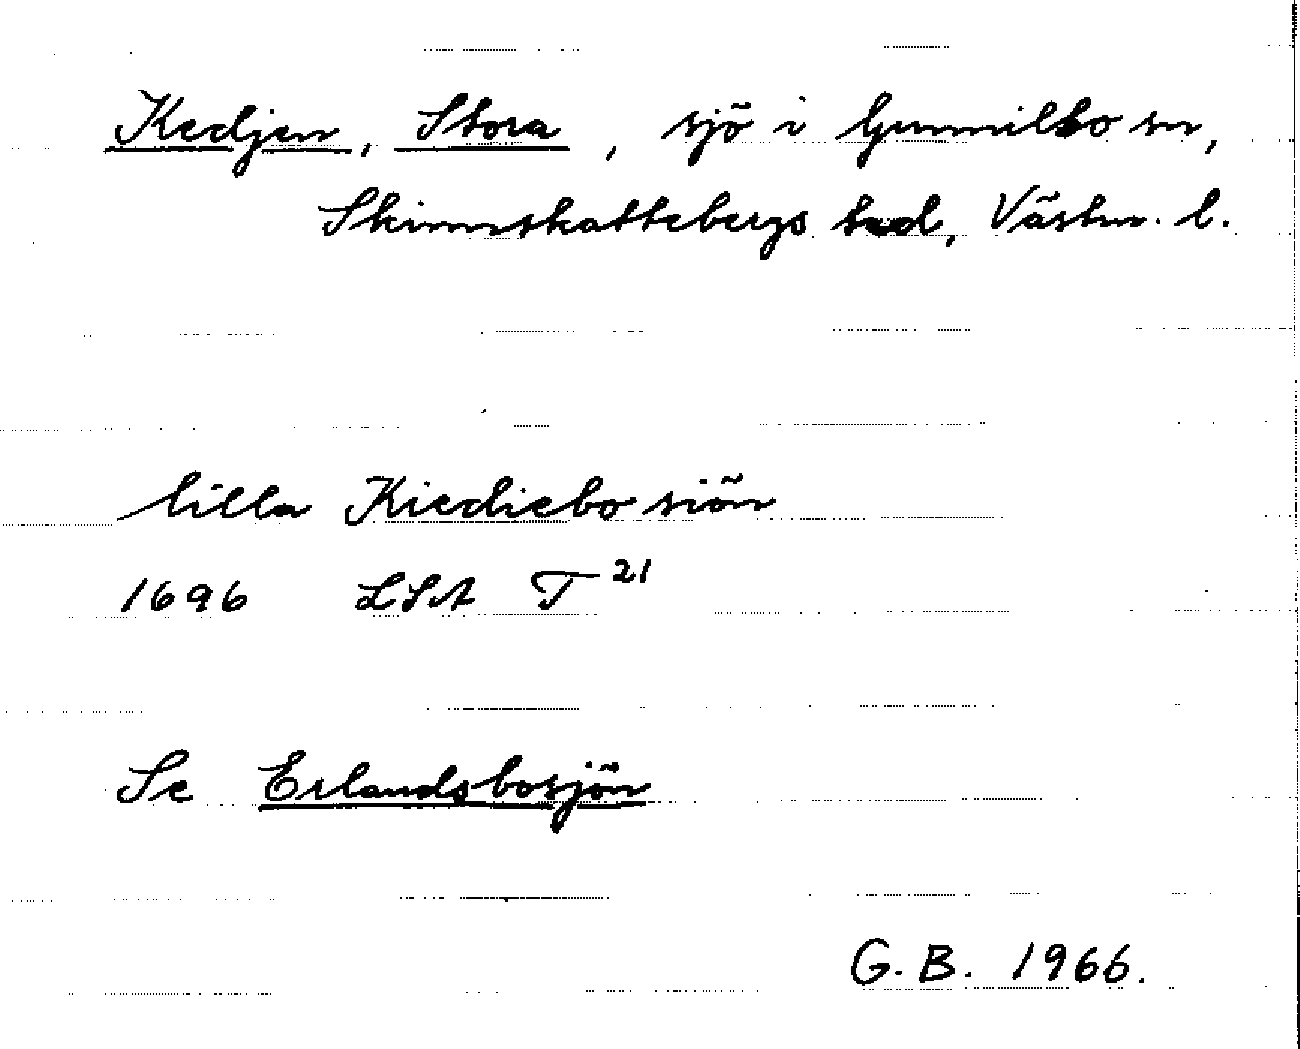 Kedjen, Stora, sjö i Gunnilbo sn,
Skinnskattebergs tsd, Västm. l.
lilla Kiediebo siön
1696 LSA T 21
Se Erlandsbosjön
G. B. 1966.